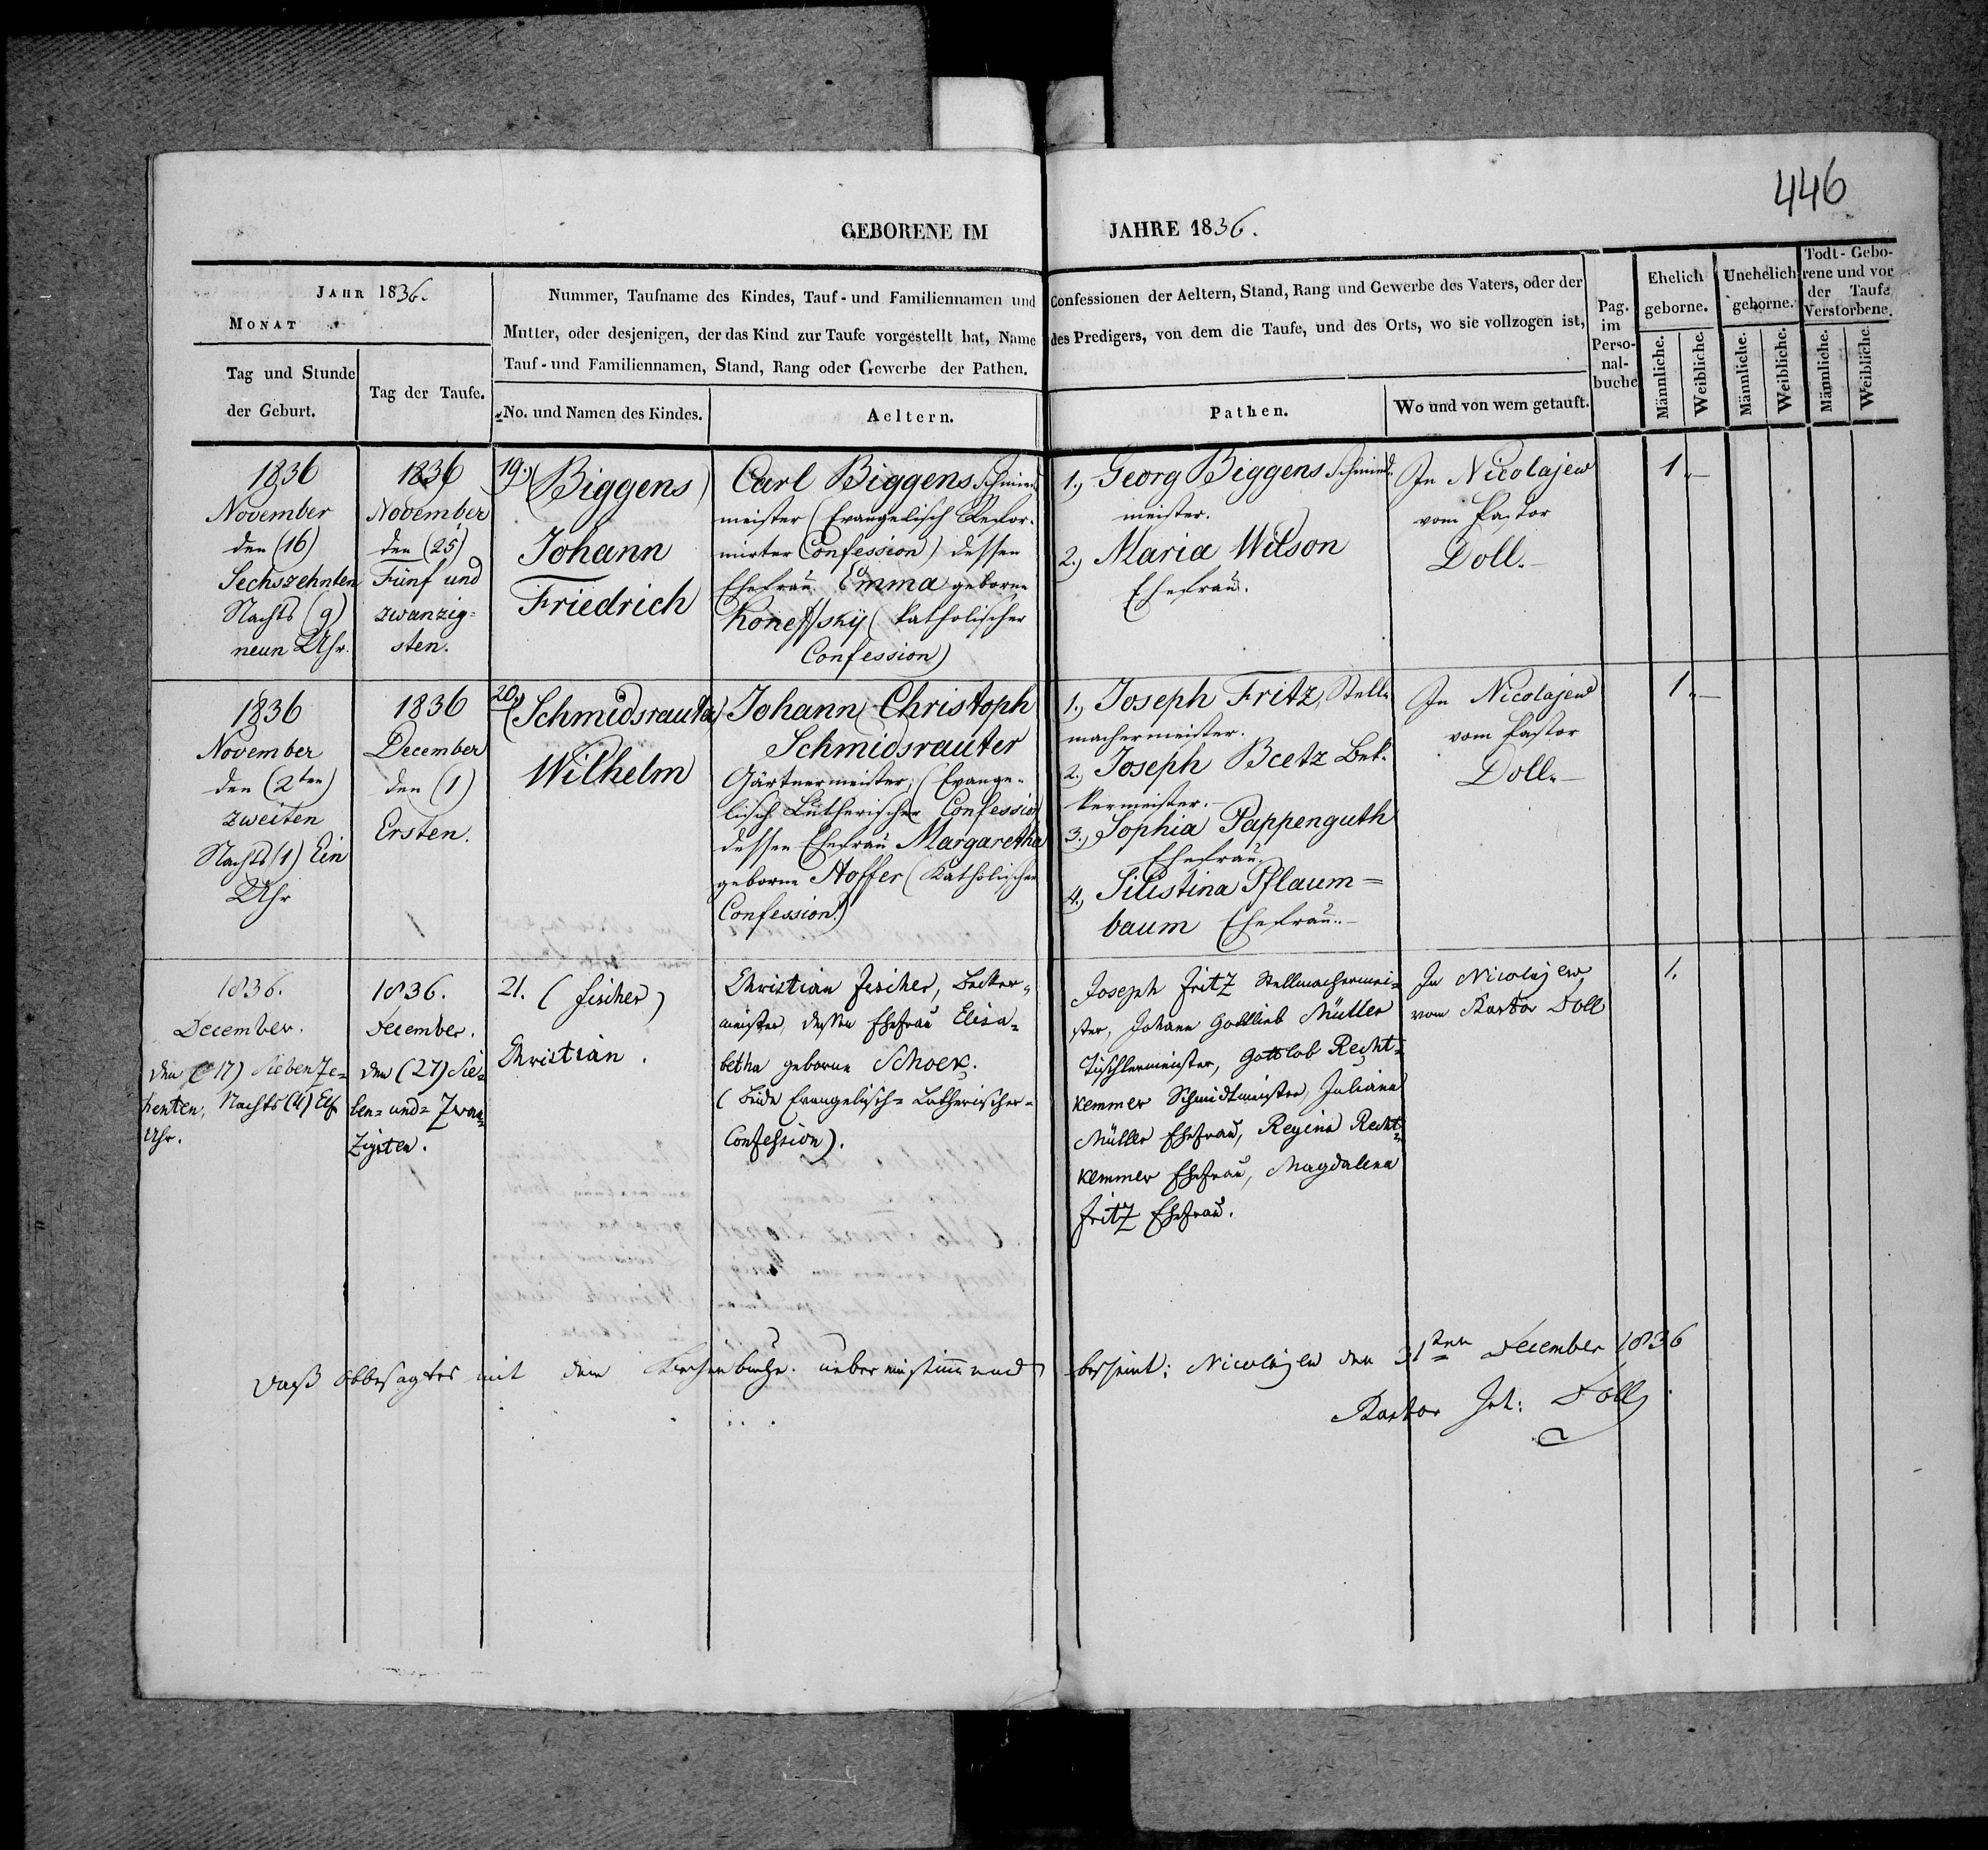 446
GEBORENE IM JAHRE 1836.
JAHR 1836.
MONAT
Tag und Stunde
der Geburt.
Tag der Taufe.
Nummer, Taufname des Kindes, Tauf- und Familiennamen und
Mutter, oder desjenigen, der das Kind zur Taufe vorgestellt hat, Name
Tauf- und Familiennamen, Stand, Rang oder Gewerbe der Pathen.
No. und Namen des Kindes.
Aeltern.
Confessionen der Aeltern, Stand, Rang und Gewerbe des Vaters, oder der
des Predigers, von dem die Taufe, und des Orts, wo sie vollzogen ist,
Pathen.
Wo und von wem getauft.
Pag.
im
Perso-
nal-
buche
Ehelich
geborne.
Männliche.
Weibliche.
Unehelich
geborne.
Männliche.
Weibliche.
Todt-Gebo-
rene und vor
der Taufe
Verstorbene.
Männliche.
Weibliche.
1836
November
den (16)
Sechszehnten
Nachts (9)
neun Uhr.
1836
November
den (25)
Fünf und
zwanzig-
sten.
19.) (Biggens)
Johann
Friedrich
Carl Biggens Schmied
meister (Evangelisch Refor-
mirter Confession) dessen
Ehefrau Emma geborne
(katholischer
Confession)
1., Georg Biggens Schmied-
meister.
2., Maria Wilson
Ehefrau.
In Nicolajew
vom Pastor
Doll.
1.
1836
November
den (2ten)
zweiten
Nachts (1) Ein
Uhr
1836
December
den (1)
Ersten.
20.) (Schmidsrauter)
Wilhelm
Johann Christoph
Schmidsrauter
Gärtnermeister, (Evange-
lisch Lutherischer Confession
dessen Ehefrau Margaretha
geborne Hoffer (Katholischer
Confession.)
1., Joseph Fritz, Stell-
machermeister.
2., Joseph Beetz Bek-
kermeister.
3., Sophia Pappenguth
Ehefrau.
4., Pflaum=
baum Ehefrau.
In Nicolajew
vom Pastor
Doll.
1.
1836.
December.
den (17) Siebenze-
henten, Nachts (11) Elf
Uhr.
1836.
December.
den (27) Sie-
ben- und- Zwan-
zigsten.
21. (Fischer)
Christian.
Christian Fischer, Becker-
meister, dessen Ehefrau Elisa-
betha geborne Schock.
(beide Evangelisch- Lutherischer-
Confession).
Joseph Fritz Stellmachermei-
ster, Johann Gottlieb Müller
Tischlermeister, Gottlob Recht-
kemmer Schmidtmeister, Juliana
Müller Ehefrau, Regina Recht-
kemmer Ehefrau, Magdalena
Fritz Ehefrau.
In Nicolajew
vom Pastor Doll
1.
Daß Obbesagtes mit dem Kirchenbuche uebereinstimmend bescheint: Nicolajew den 31ten December 1836
Pastor Joh: Doll